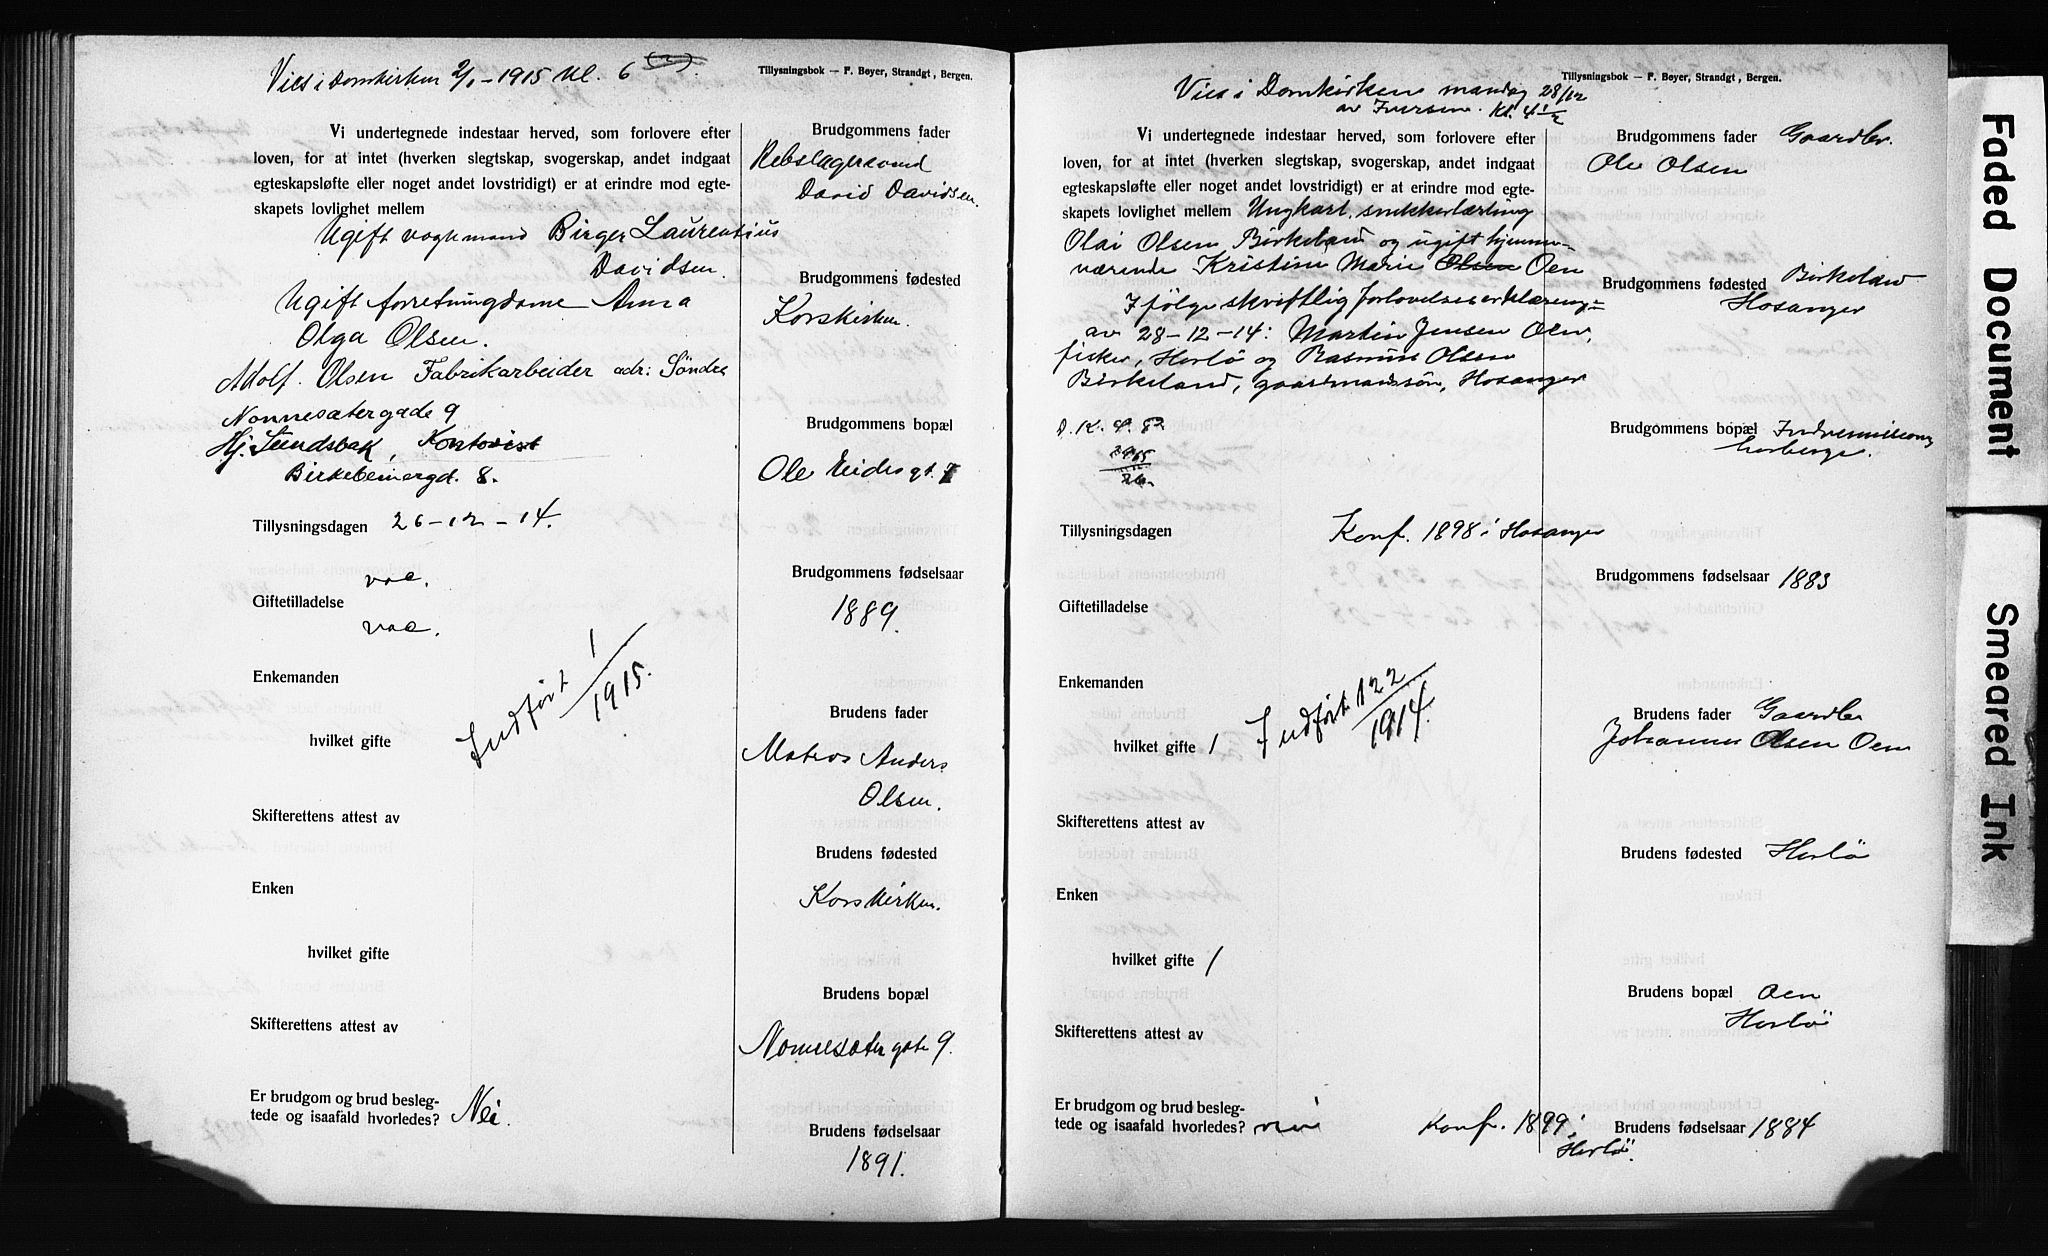 Vies i Domkirken 2/1 - 1915 Kl. 6
Tillysningsbok — F. Bøyer, Strandgt, Bergen.
Vi undertegnede indestaar herved, som forlovere efter
loven, for at intet (hverken slegtskap, svogerskap, andet indgaat
egteskapsløfte eller noget andet lovstridigt) er at erindre mod egte-
skapets lovlighet mellem
Ugift vognmand Birger Laurentius
Davidsen.
Ugift forretningsdame Anna
Olga Olsen.
Adolf. Olsen Fabrikarbeider adr: Söndre
Nonnesætergade 9
Hj. Sundsbak, Kontorist
Birkebeinergd. 8.
Tillysningsdagen 26-12-14.
vac.
Giftetilladelse
vac.
Enkemanden
Indført 1/1915.
hvilket gifte
Skifterettens attest av
Enken
hvilket gifte
Skifterettens attest av
Er brudgom og brud besleg-
tede og isaafald hvorledes? Nei.
Brudgommens fader
Rebslagersvend
David Davidsen.
Brudgommens fødested
Korskirken.
Brudgommens bopæl
Ole Eides gt. 7
Brudgommens fødselsaar
1889.
Brudens fader
Matros Anders
Olsen.
Brudens fødested
Korskirken.
Brudens bopæl
Nonnesæter gate 9.
Brudens fødselsaar
1891.
Tillysningsbok — F. Bøyer, Strandgt, Bergen.
Vies i Domkirken mandag 28/12
av Iversen. Kl. 4 1/2
Vi undertegnede indestaar herved, som forlovere efter
loven, for at intet (hverken slegtskap, svogerskap, andet indgaat
egteskapsløfte eller noget andet lovstridigt) er at erindre mod egte-
skapets lovlighet mellem Ungkarl, snikkerlærling
Olai Olsen Birkeland og ugift hjemme-
værende Kristine Marie Olsen Oen
Ifølge skriftlig forlovelseserklæring
av 28-12-14: Martin Jensen Oen,
fisker, Herlö og Rasmus Olsen
Birkeland, gaardmandssön, Hosanger
Tillysningsdagen
Konf. 1898 i Hosanger
Giftetilladelse
Enkemanden
Indført 122/1914.
hvilket gifte 1
Skifterettens attest av
Enken
hvilket gifte 1
Skifterettens attest av
Er brudgom og brud besleg-
tede og isaafald hvorledes? nei
Konf. 1899 i
Herlö.
Brudgommens fader Gaardbr.
Ole Olsen
Brudgommens fødested Birkeland
Hosanger
Brudgommens bopæl Indremissions
herberge.
Brudgommens fødselsaar 1883
Brudens fader Gaardbr
Johannes Olsen Oen
Brudens fødested Herlö
Brudens bopæl Oen
Herlö
Brudens fødselsaar 1884
Faded Document
Smeared Ink